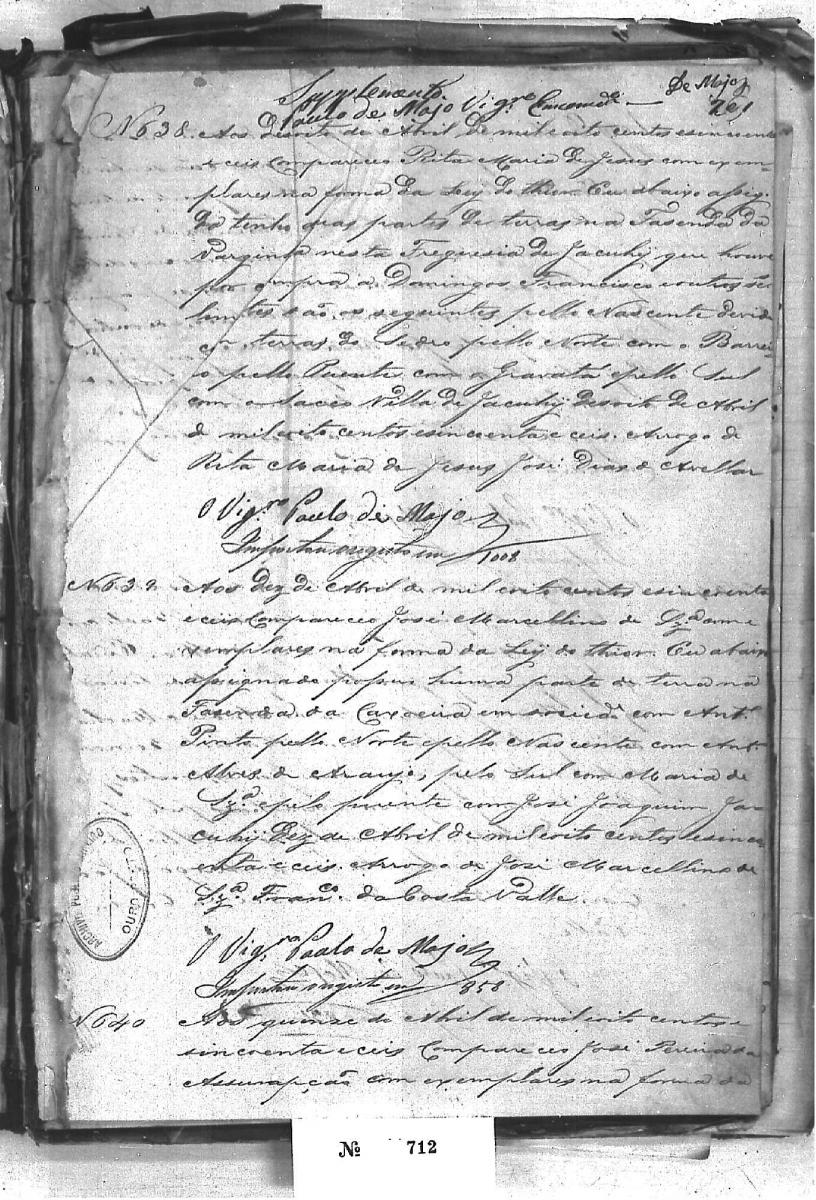 De Majo
201
Supplemento.
Paulo de Majo Vigrº Encomdº
N 638. Aos desoito de Abril de mil oito centos e sincoenta
e ceis Compareceo Rita Maria de Jesus com exem-
plares na forma da Ley do thior. Eu abaixo assig.
do tenho duas partes de terras na Fasenda da
Varginha nesta Freguesia de Jacuhy que houve
por compra a Domingos Francisco e outros
lemites são os seguintes pello Nascente devide
com terras do Pedro pello Norte com o Barrei-
o pello Puente com o Gravatá e pello Sul
com o Villa de Jacuhy desoito de Abril
de mil oito centos e sincoenta e ceis. Arrogo de
Rita Maria de Jesus José Dias de Avellar
O Vig.ro Paulo de Majo
Importou o registo em 1008
N 639. Aos dez de Abril de mil oito centos e sincoenta
e ceis Compareceo José Marcellino de Sz.ª com e-
xemplares na forma da Ley do thior. Eu abaixo
assignado possuo huma parte de terra na
Fasenda da Caxoeira em socied.e com Ant.º
Pinto pello Norte e pello Nascente com Ant.º
Alves de Araujo, pelo Sul com Maria de
Sz.ª e pelo puente com José Joaquim Ja-
cuhy Dez de Abril de mil oito centos e sinco-
enta e ceis. Arrogo de José Marcellino de
Sz.ª Fran.co da Costa Valle.
O Vig.ro Paulo de Majo
Importou o registo em 858
N 640 Aos quinse de Abril de mil oito centos e
sincoenta e ceis Compareceo José Pereira da
Assumpção com exemplares na forma da
ARCHIVO PUBLICO MINEIRO
OURO
Nº 712